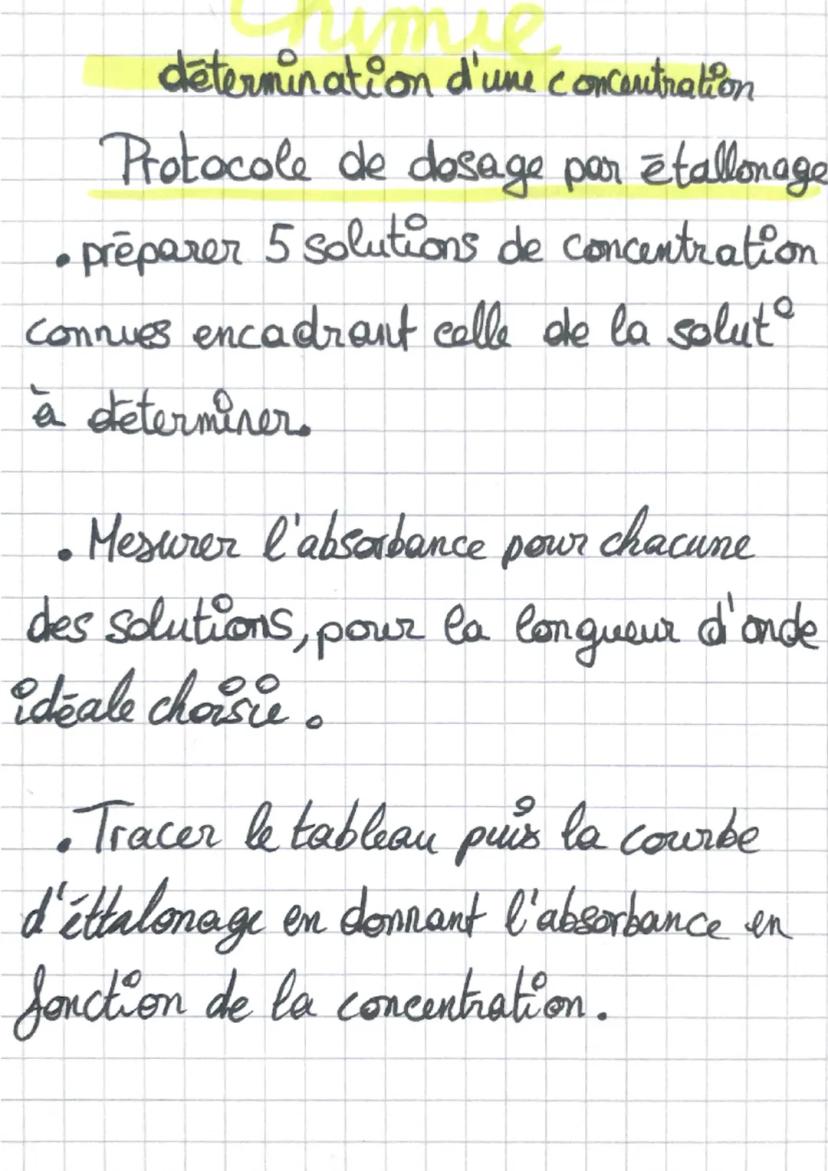 Chimie
détermination d'une concentration
Protocole de dosage par étallonage
. préparer 5 solutions de concentration
connues encadrant celle de la solut°
à déterminer.
. Mesurer l'absorbance pour chacune
des solutions, pour la longueur d'onde
idéale choisie.
. Tracer le tableau puis la courbe
d'éttalonage en donnant l'absorbance en
fonction de la concentration.